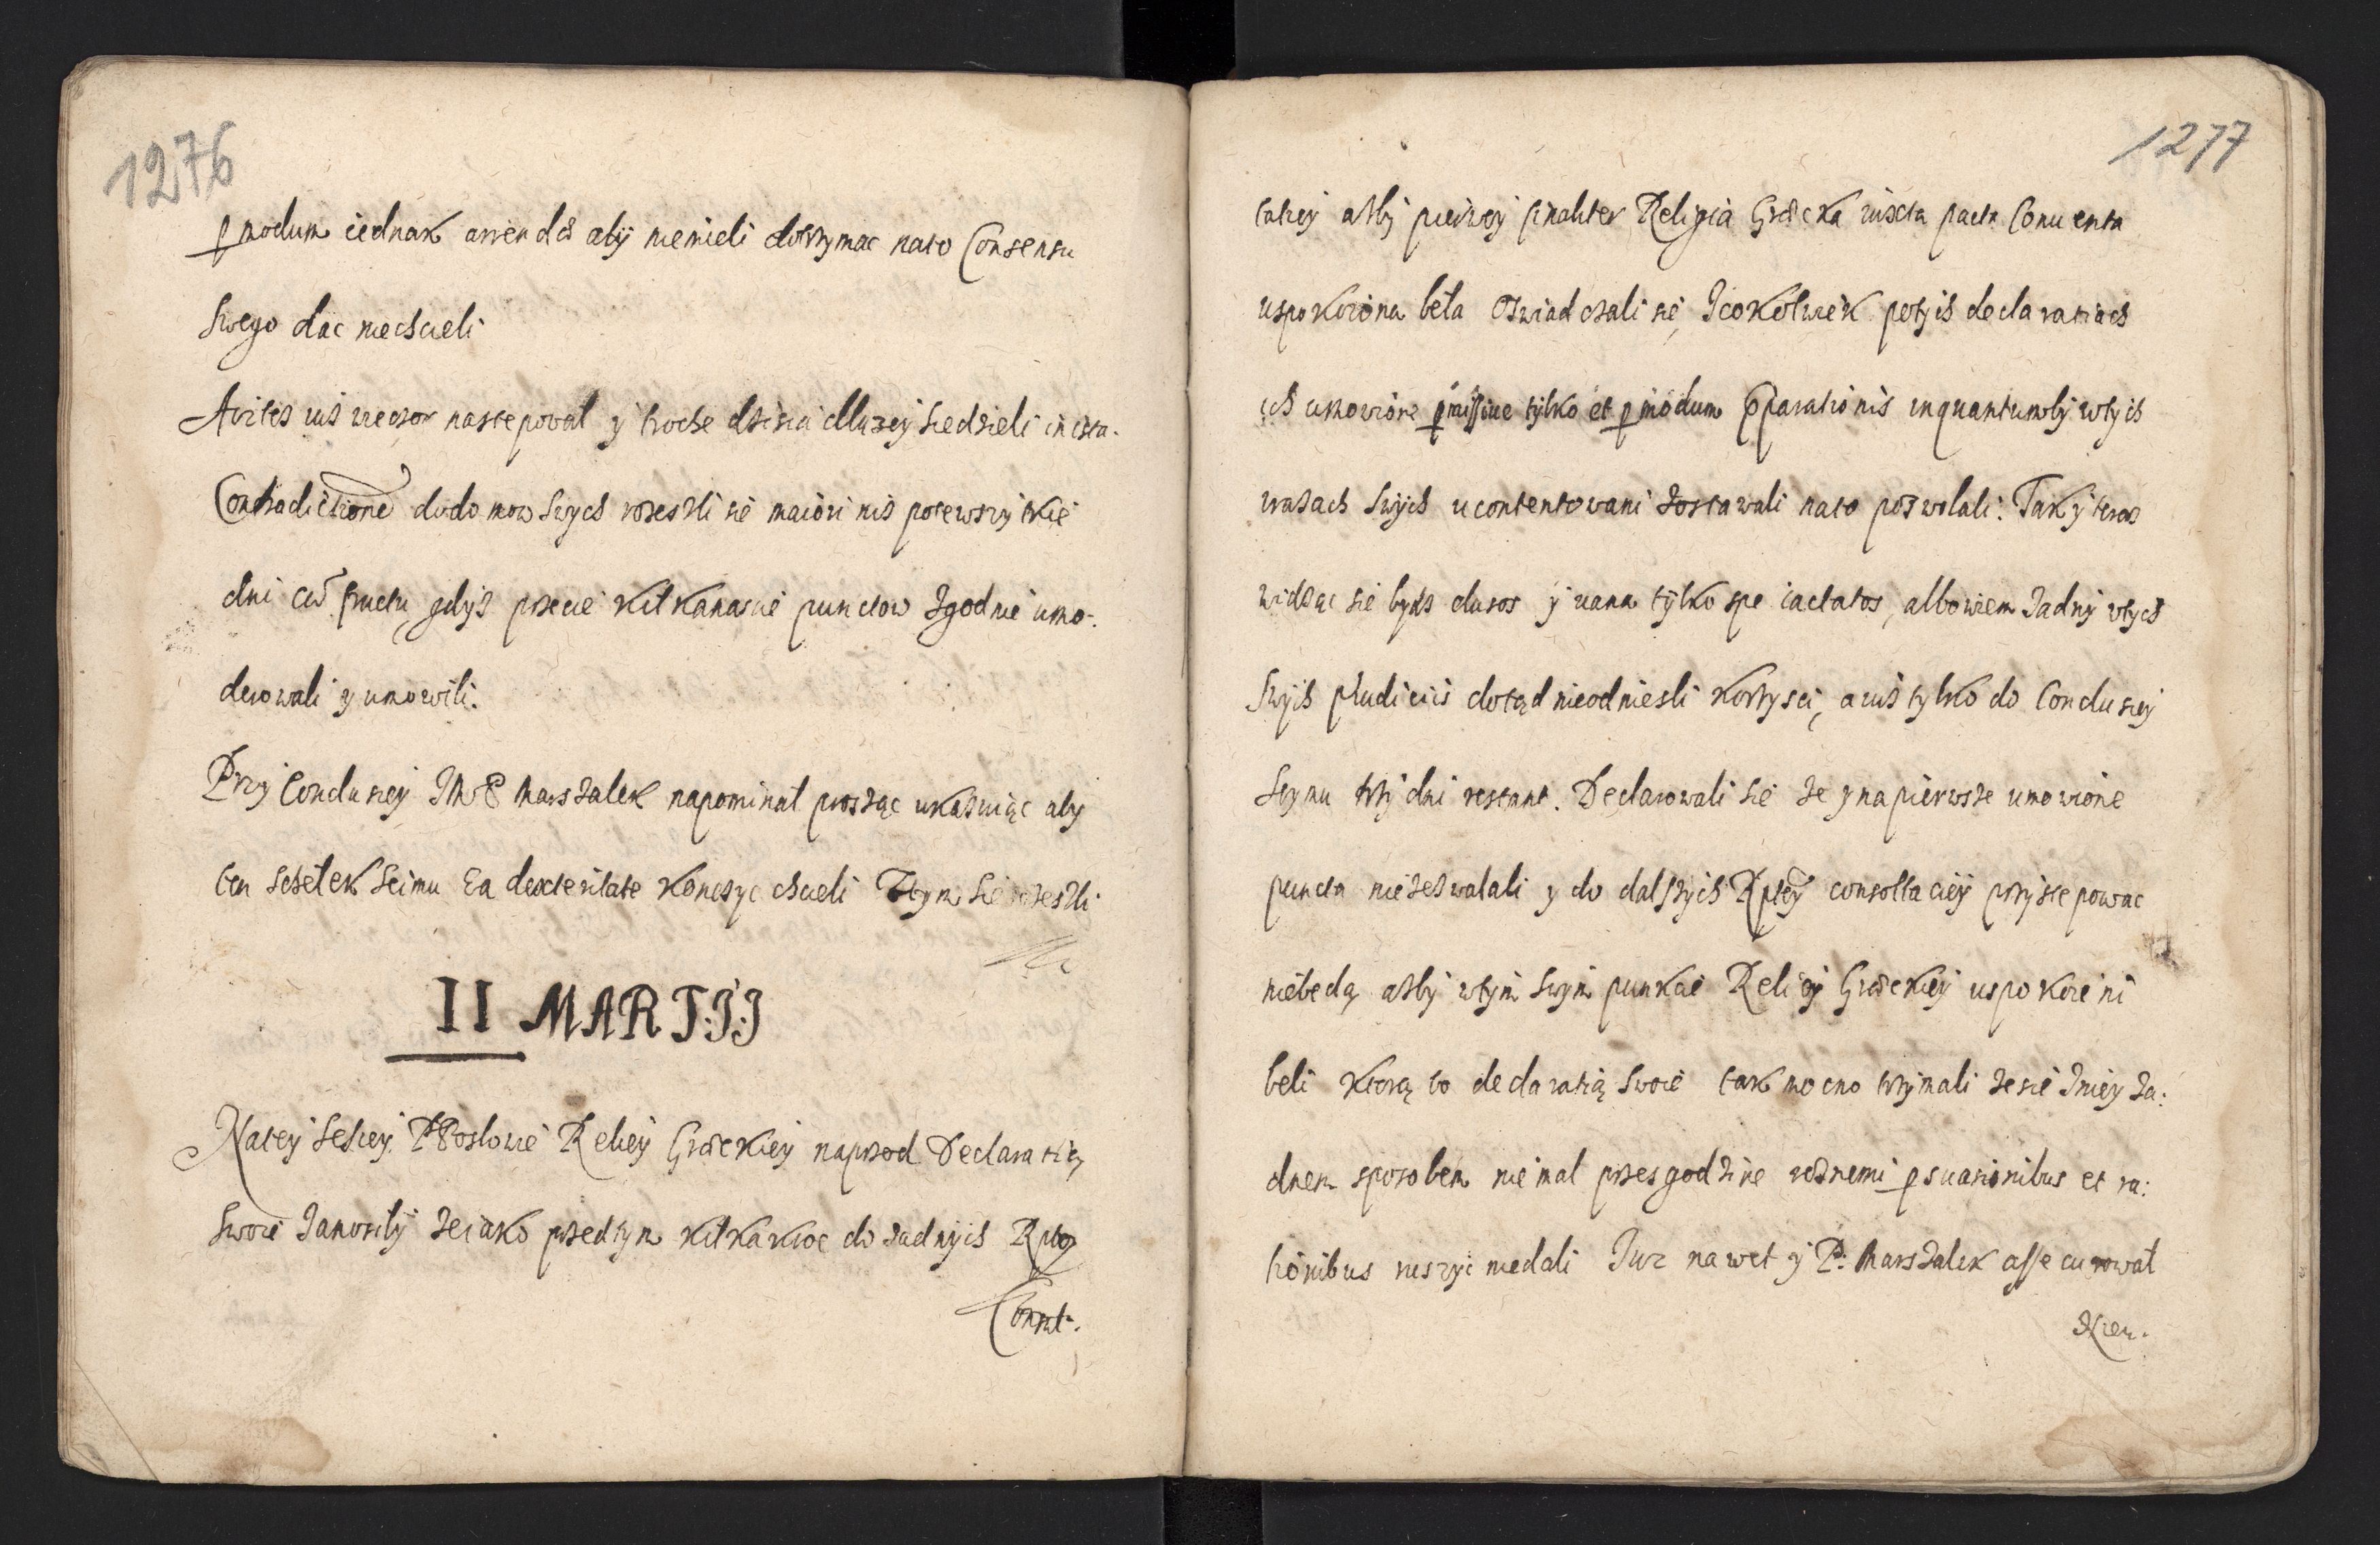 1276
p modum iednak arrendæ aby niemieli dotrzymac nato Consensu
swego dac niechcieli
Avites ius wieczor nastepowal y troche dzisia dluzey siedzieli in ista.
Contradictione do domow swych rozeszli sie maiori nis potewszytkie
dni cu fructu, gdysz przecie kilkanascie punctow zgodnie umo-
derowali y umowili.
Przy Conclusiey JMP Marszalek napominal proszac ukazuiąc aby
ten sczetek seimu Ea dexteritate konczyc chcieli Ztym sie rozeszli
II MARTII
Natey sessiey PPoslowie Reliey Græckiey naprzod Declaratią
swoie zanosily ze iako przedtym kilkakroc do zadnych Rptey
Consult.
1277
tatiey asby pierwey finaliter Religia Græcka iuxta pacta Conuenta
uspokoiona beła Oswiadczali się, Icokolwiek potych declaratiach
ich umowione pmissiue tylko et p modum pparationis inquantumby wtych
urazach swych ucontentowani zostawali nato pozwolali: Tak y teras
widząc sie bydz elusos y uana tylko spe iactatos, albowiem zadny wtych
swych pludiciis dotąd nieodniesli korzysci, a iusz tylko do Conclusiey
Seymu trzy dni restant. Declarowali sie ze y na pierwsze umowione
puncta niezezwalali y do dalszych Rptey consoltaciey przystepowac
niebedą asby wtym swym punkcie Religy Græckiey uspokoieni
beli ktorą to declaratią swoie tak mocno trzymali ze sie zniey za:
dnem sposobem niemal przes godzine roznemi psuasionibus et ra:
tionibus ruszyc niedali Iuz nawet y P: Marszalek assecurowal
Xiem.